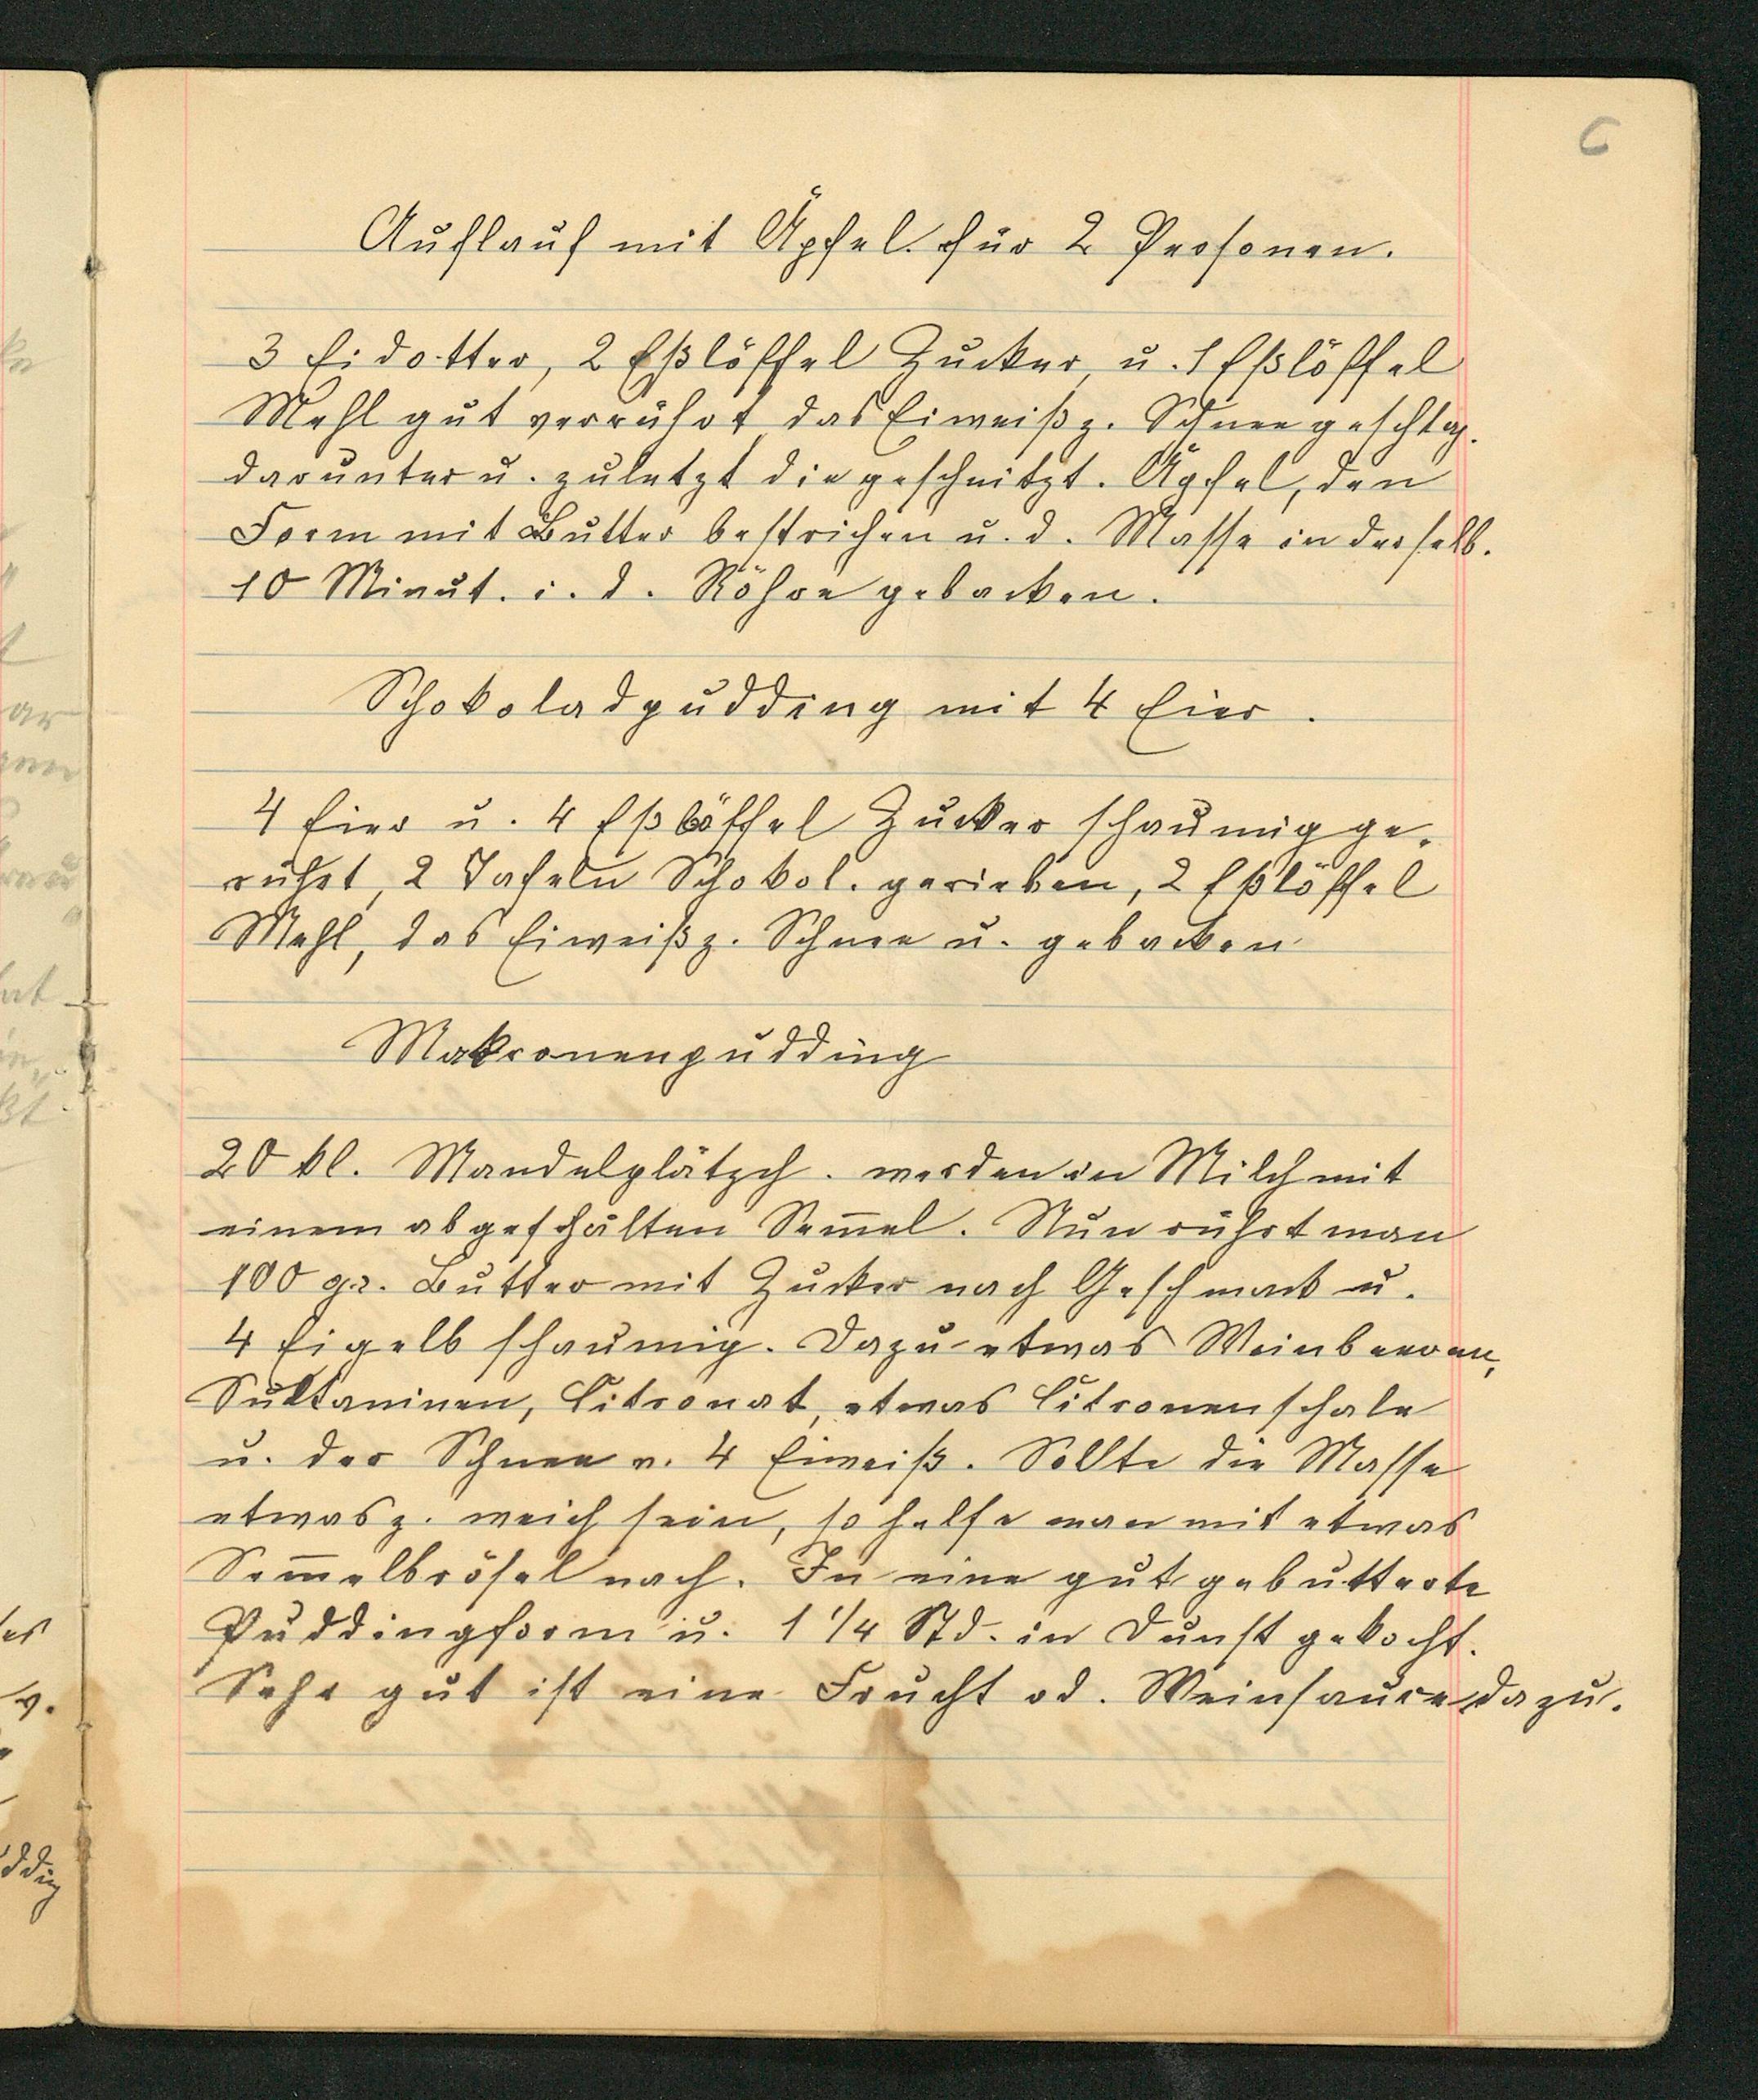 6
Auflauf mit Äpfel für 2 Personen.
3 Eidotter, 2 Eßlöffel Zucker, u. 1 Eßlöffel
Mehl gut verrührt, das Eiweiß z. Schnee geschlag.
darunter u. zuletzt die geschnitzt. Äpfel, den
Form mit Butter bestrichen u. d. Masse in derselb.
10 Minut. i. d. Röhre gebacken.
Schokoladpudding mit 4 Eier.
4 Eier u. 4 Eßlöffel Zucker schaumig ge-
rührt, 2 Tafeln Schokol. gerieben, 2 Eßlöffel
Mehl, das Eiweiß z. Schnee u. gebacken
Makronenpudding
20 kl. Mandelplätzch. werden in Milch mit
einem abgeschälten Sem̅el. Nun rührt man
100 gr. Butter mit Zucker nach Geschmack u.
4 Eigelb schaumig. Dazu etwas Weinbeeren,
Sultaninen, Citronat, etwas Citronenschale
u. der Schnee v. 4 Eiweiß. Sollte die Masse
etwas z. weich sein, so helfe man mit etwas
Sem̅elbrösel nach. In eine gut gebutterte
Puddingform u. 1 1/4 Std. in Dunst gekocht.
Sehr gut ist eine Frucht od. Weinsauce dazu.